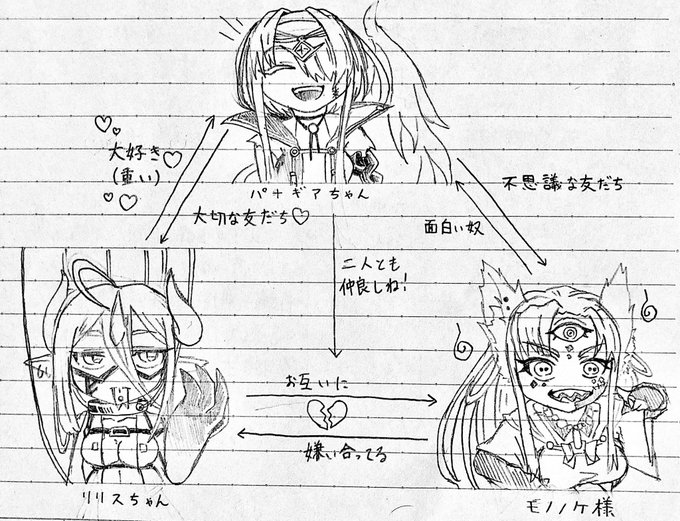 パナギアちゃん
大好き♡
(重い)
大切な友だち♡
不思議な友だち
面白い奴
二人とも
仲良しね！
お互いに
嫌い合ってる
リリスちゃん
モノノケ様